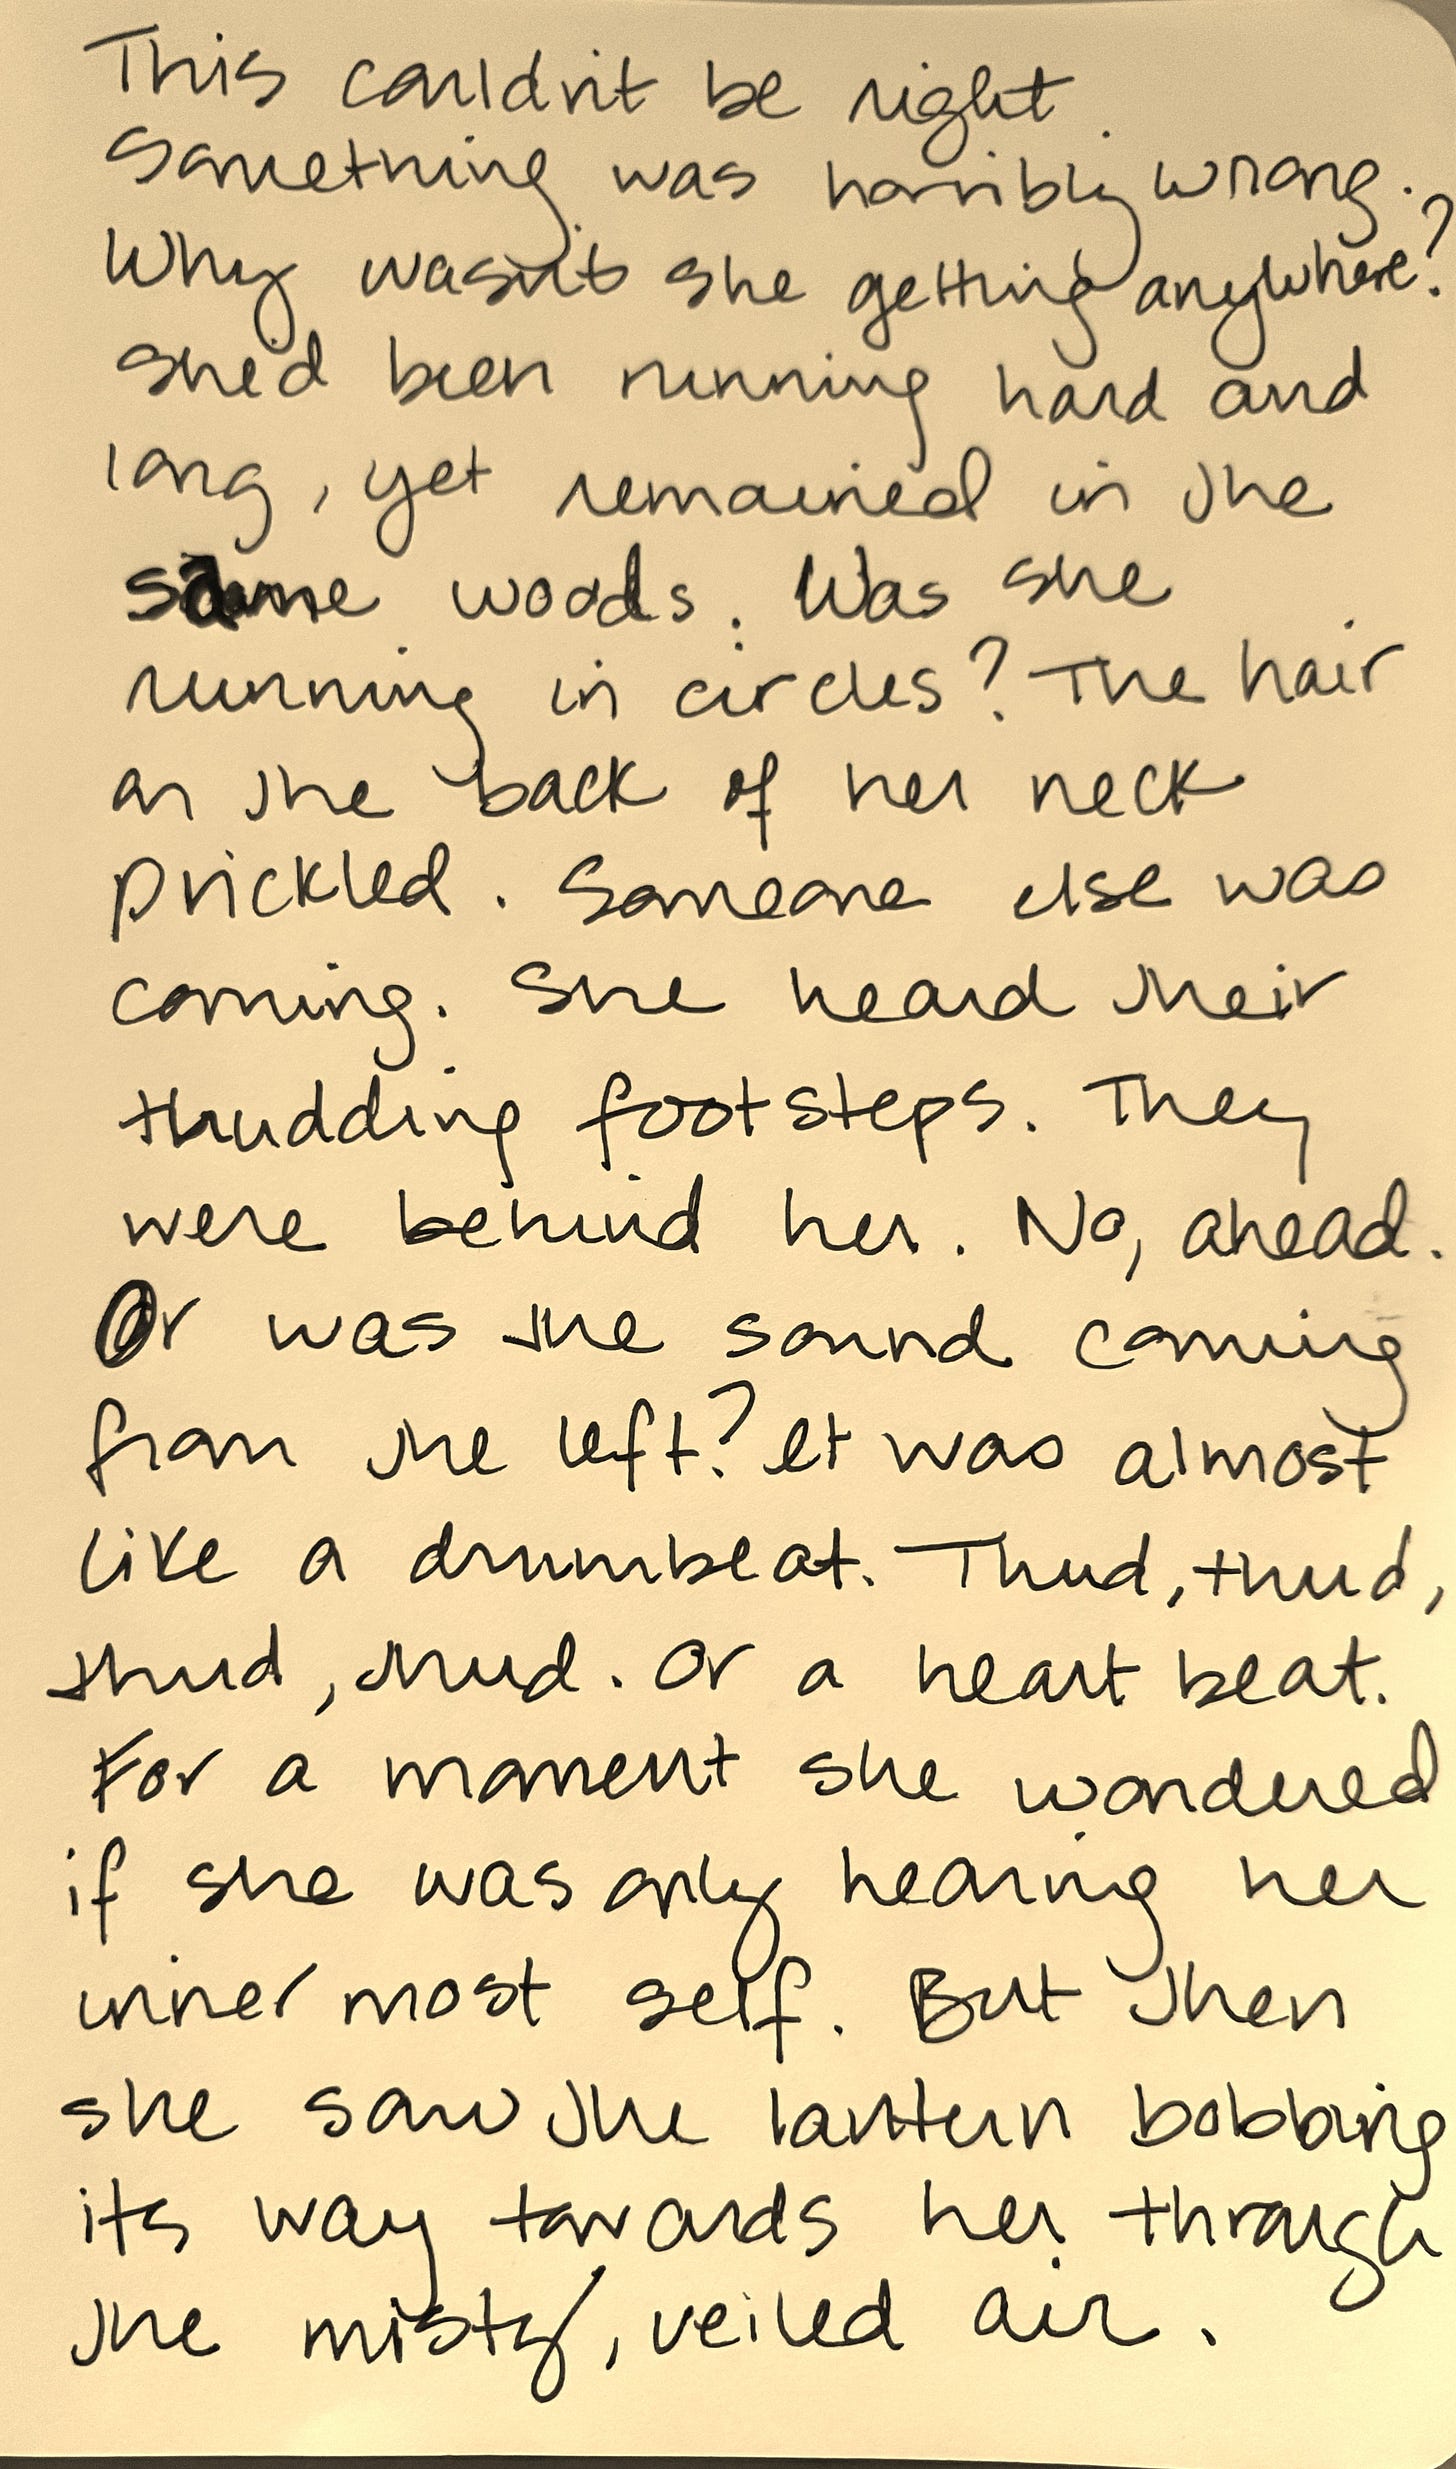 This couldn't be right.
Something was horribly wrong.
Why wasn't she getting anywhere?
She'd been running hard and
long, yet remained in the
same woods. Was she
running in circles? The hair
on the back of her neck
prickled. Someone else was
coming. She heard their
thudding footsteps. They
were behind her. No, ahead.
Or was the sound coming
from the left? It was almost
like a drumbeat. Thud, thud,
thud, thud. Or a heart beat.
For a moment she wondered
if she was only hearing her
inner most self. But then
she saw the lantern bobbing
its way towards her through
the misty, veiled air.